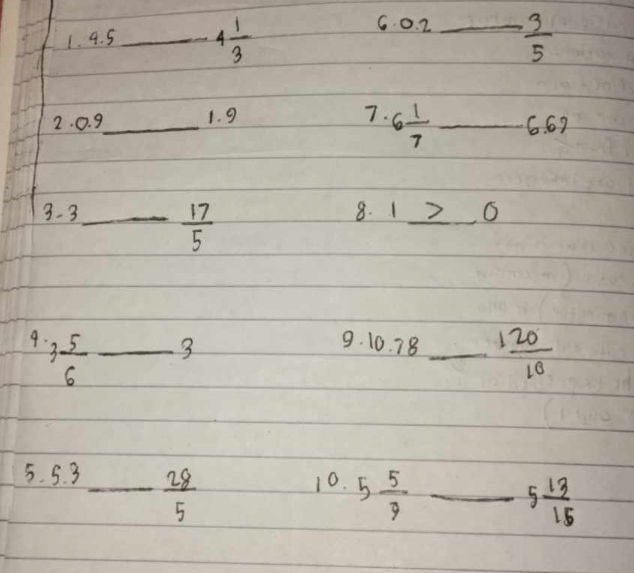 1. 4.5 ____ 4 1/3
6. 0.2 ____ 3/5
2. 0.9 ____ 1.9
7. 6 1/7 ____ 6.67
3. 3 ____ 17/5
8. 1 > 0
4. 3 5/6 ____ 3
9. 10.78 ____ 120/10
5. 5.3 ____ 28/5
10. 5 5/9 ____ 5 13/15